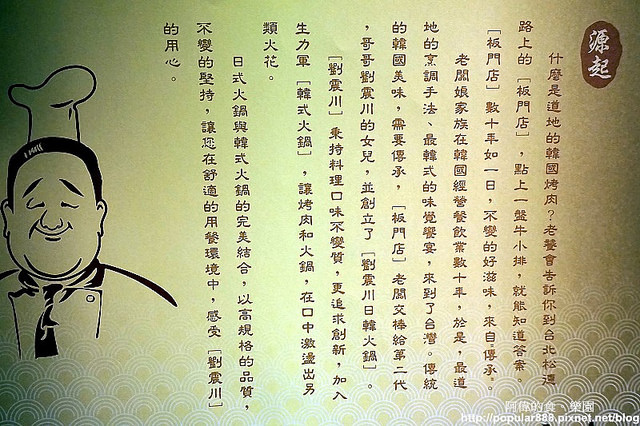 源起
什麼是道地的韓國烤肉？老饕會告訴你到台北松江
路上的「板門店」，點上一盤牛小排，就能知道答案。
「板門店」數十年如一日，不變的好滋味，來自傳承。
老闆娘家族在韓國經營餐飲業數十年，於是，最道
地的烹調手法、最韓式的味覺饗宴，來到了台灣。傳統
的韓國美味，需要傳承，「板門店」老闆交棒給第二代
，哥哥劉震川的女兒，並創立了「劉震川日韓火鍋」。
「劉震川」秉持料理口味不變質，更追求創新，加入
生力軍「韓式火鍋」，讓烤肉和火鍋，在口中激盪出另
類火花。
日式火鍋與韓式火鍋的完美結合，以高規格的品質，
不變的堅持，讓您在舒適的用餐環境中，感受「劉震川」
的用心。
阿偉的食、樂園
http://popular888.pixnet.net/blog